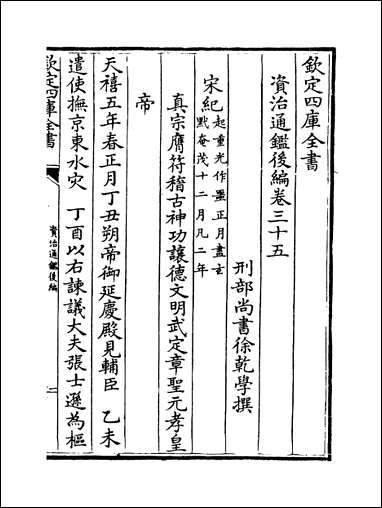 欽定四庫全書
資治通鑑後編卷三十五
刑部尚書徐乾學撰
宋紀起重光作噩正月盡玄
黓奄茂十二月凡二年
真宗膺符稽古神功讓德文明武定章聖元孝皇
帝
天禧五年春正月丁丑朔帝御延慶殿見輔臣 乙未
遣使撫京東水灾 丁酉以右諫議大夫張士遜為樞
欽定四庫全書
資治通鑑後編
一